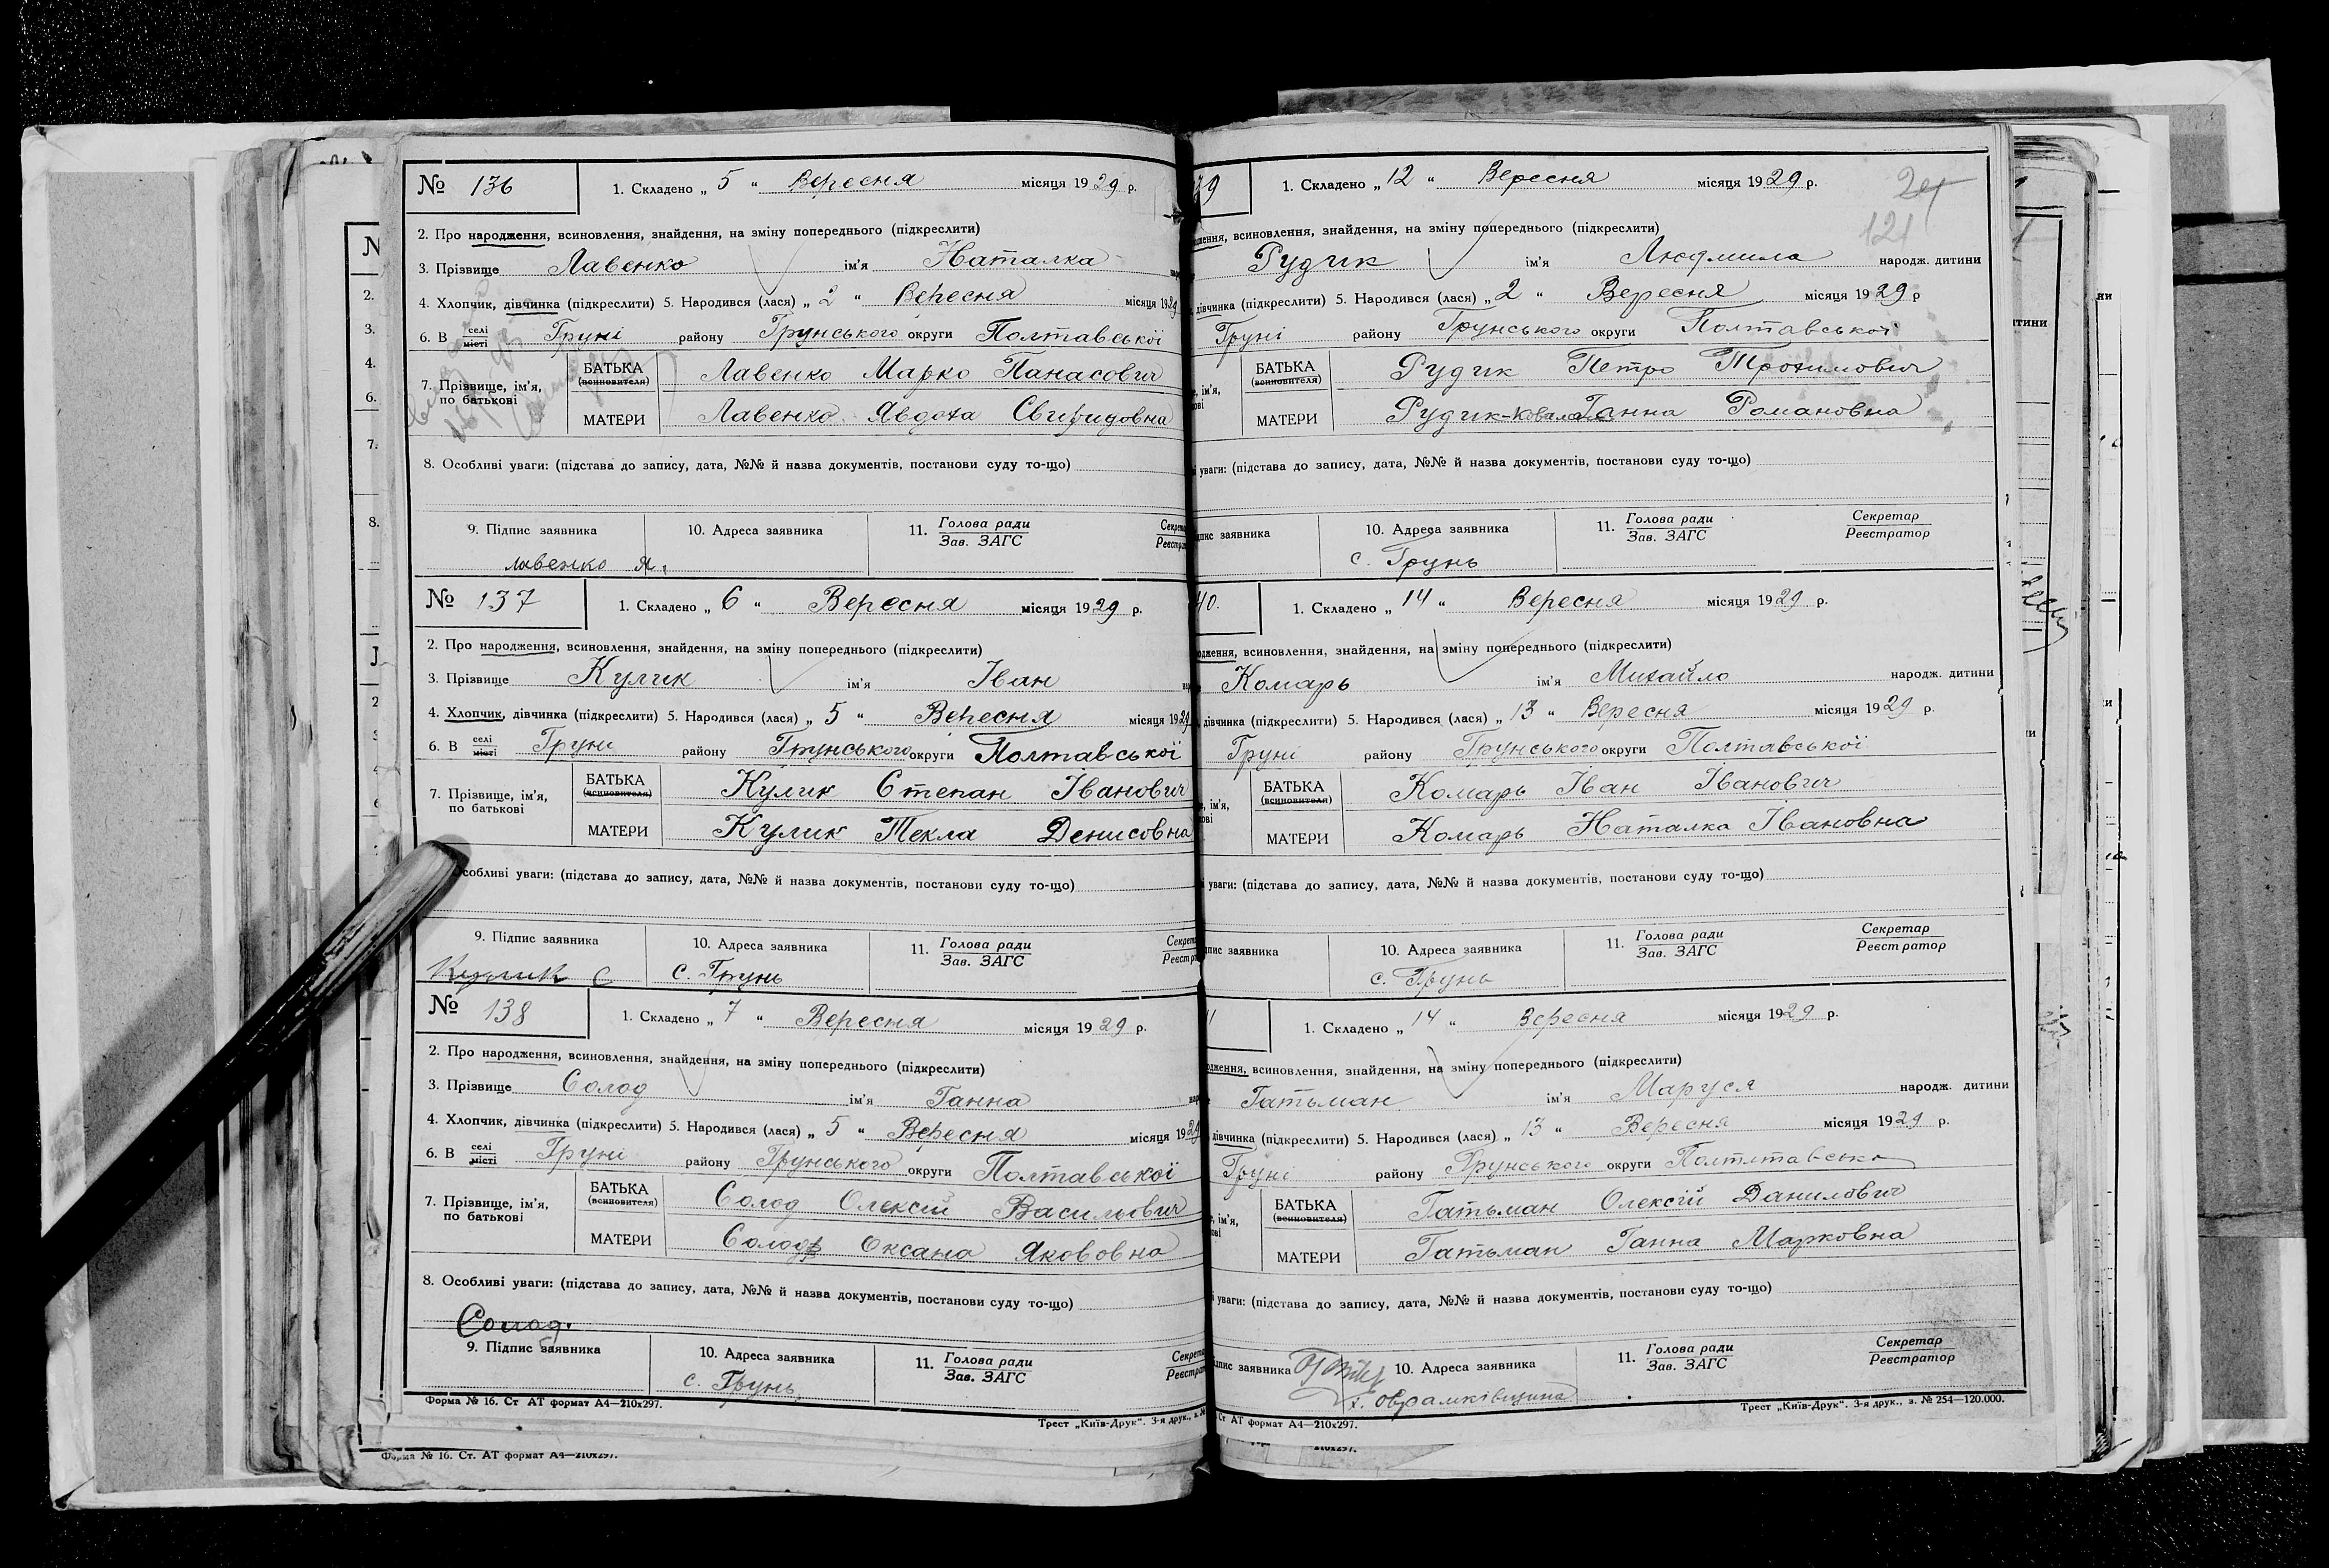 № 136
1. Складено „ 5 “ Вересня місяця 1929 р.
2. Про народження, всиновлення, знайдення, на зміну попереднього (підкреслити)
3. Прізвище Лавенко ім'я Наталка
4. Хлопчик, дівчинка (підкреслити) 5. Народився (лася) „ 2 “ Вересня місяця 1929
6. В селі місті Груні району Грунського округи Полтавської
7. Прізвище, ім'я, по батькові
БАТЬКА (всиновителя) Лавенко Марко Панасович
МАТЕРИ Лавенко Явдоха Свиридовна
8. Особливі уваги: (підстава до запису, дата, №№ й назва документів, постанови суду то-що)
9. Підпис заявника 10. Адреса заявника 11. Голова ради Зав. ЗАГС
лавенко Я.
№ 137
1. Складено „ 6 “ Вересня місяця 1929 р.
2. Про народження, всиновлення, знайдення, на зміну попереднього (підкреслити)
3. Прізвище Кулик ім'я Іван
4. Хлопчик, дівчинка (підкреслити) 5. Народився (лася) „ 5 “ Вересня місяця 1929
6. В селі місті Груні району Грунського округи Полтавської
7. Прізвище, ім'я, по батькові
БАТЬКА (всиновителя) Кулик Степан Іванович
МАТЕРИ Кулик Текла Денисовна
собливі уваги: (підстава до запису, дата, №№ й назва документів, постанови суду то-що)
9. Підпис заявника 10. Адреса заявника 11. Голова ради Зав. ЗАГС
Кулик С с. Грунь
№ 138
1. Складено „ 7 “ Вересня місяця 1929 р.
2. Про народження, всиновлення, знайдення, на зміну попереднього (підкреслити)
3. Прізвище Солод ім'я Ганна
4. Хлопчик, дівчинка (підкреслити) 5. Народився (лася) „ 5 “ Вересня місяця 1929
6. В селі місті Груні району Грунського округи Полтавської
7. Прізвище, ім'я, по батькові
БАТЬКА (всиновителя) Солод Олексій Васильович
МАТЕРИ Солод Оксана Якововна
8. Особливі уваги: (підстава до запису, дата, №№ й назва документів, постанови суду то-що)
Солод.
9. Підпис заявника 10. Адреса заявника 11. Голова ради Зав. ЗАГС
с. Грунь
Форма № 16. Ст АТ формат А4—210х297.
Трест „Київ-Друк“. 3-я друк., з. №
Форма № 16. Ст. АТ формат А4—210х297.
39
1. Складено „ 12 “ Вересня місяця 1929 р.
24
121
ження, всиновлення, знайдення, на зміну попереднього (підкреслити)
Рудик ім'я Людмила народж. дитини
дівчинка (підкреслити) 5. Народився (лася) „ 2 “ Вересня місяця 1929 р
Груні району Грунського округи Полтавської
БАТЬКА (всиновителя) Рудик Петро Трохимович
МАТЕРИ Рудик- Ганна Романовна
уваги: (підстава до запису, дата, №№ й назва документів, постанови суду то-що)
заявника 10. Адреса заявника 11. Голова ради Зав. ЗАГС Секретар Реєстратор
с. Грунь
40.
1. Складено „ 14 “ Вересня місяця 1929 р.
дження, всиновлення, знайдення, на зміну попереднього (підкреслити)
Комарь ім'я Михайло народж. дитини
дівчинка (підкреслити) 5. Народився (лася) „ 13 “ Вересня місяця 1929 р.
Груні району Грунського округи Полтавської
БАТЬКА (всиновителя) Комарь Іван Іванович
МАТЕРИ Комарь Наталка Івановна
уваги: (підстава до запису, дата, №№ й назва документів, постанови суду то-що)
заявника 10. Адреса заявника 11. Голова ради Зав. ЗАГС Секретар Реєстратор
с. Грунь
1. Складено „ 14 “ Вересня місяця 1929 р.
дження, всиновлення, знайдення, на зміну попереднього (підкреслити)
Гатьман ім'я Маруся народж. дитини
дівчинка (підкреслити) 5. Народився (лася) „ 13 “ Вересня місяця 1929 р.
Груні району Грунського округи
БАТЬКА (всиновителя) Гатьман Олексій Данилович
МАТЕРИ Гатьман Ганна Марковна
уваги: (підстава до запису, дата, №№ й назва документів, постанови суду то-що)
заявника 10. Адреса заявника 11. Голова ради Зав. ЗАГС Секретар Реєстратор
х. Оврамківщина
Ст АТ формат А4—210х297.
Трест „Київ-Друк“. 3-я друк., з. № 254—120.000.